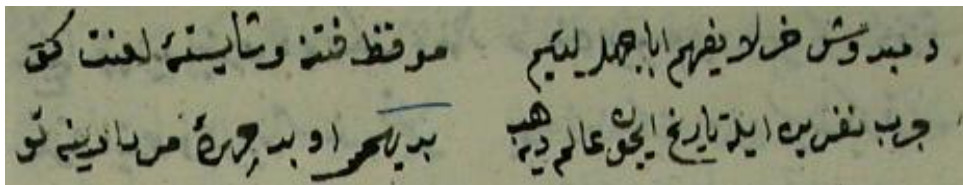 دمبدوش خر لا يفهم ابا جهل لئيم موقظ فتنه و شايستهٔ لعنت
چوب نفرين ايله تاريخ ايچون عالم ديه هب او بد چهرهٔ مردارينه تو